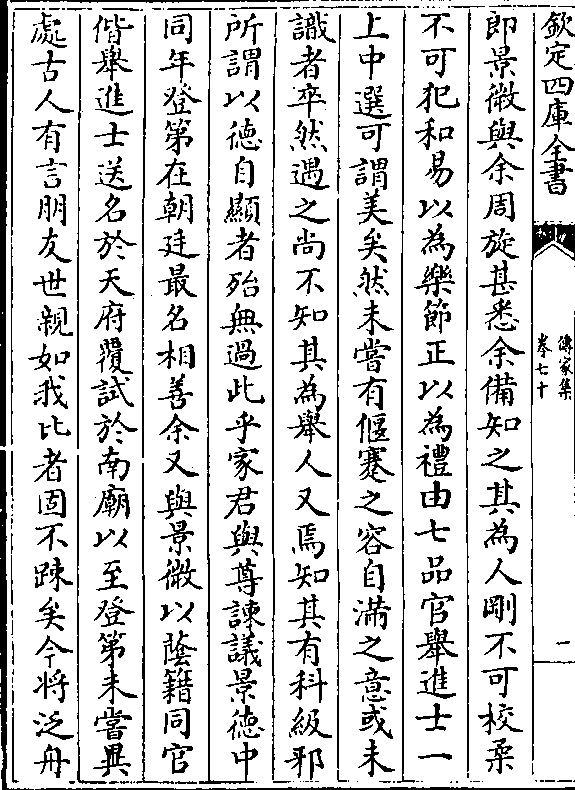 欽定四庫全書
傳家集
卷七十
一
郎景微與余周旋甚悉余備知之其為人剛不可挍柔
不可犯和易以為樂節正以為禮由七品官舉進士一
上中選可謂美矣然未嘗有偃蹇之容自滿之意或未
識者卒然遇之尚不知其為舉人又焉知其有科級邪
所謂以德自顯者殆無過此乎家君與尊諫議景德中
同年登第在朝廷最名相善余又與景微以蔭籍同官
偕舉進士送名於天府覆試於南廟以至登第未嘗異
處古人有言朋友世親如我比者固不踈矣今将泛舟